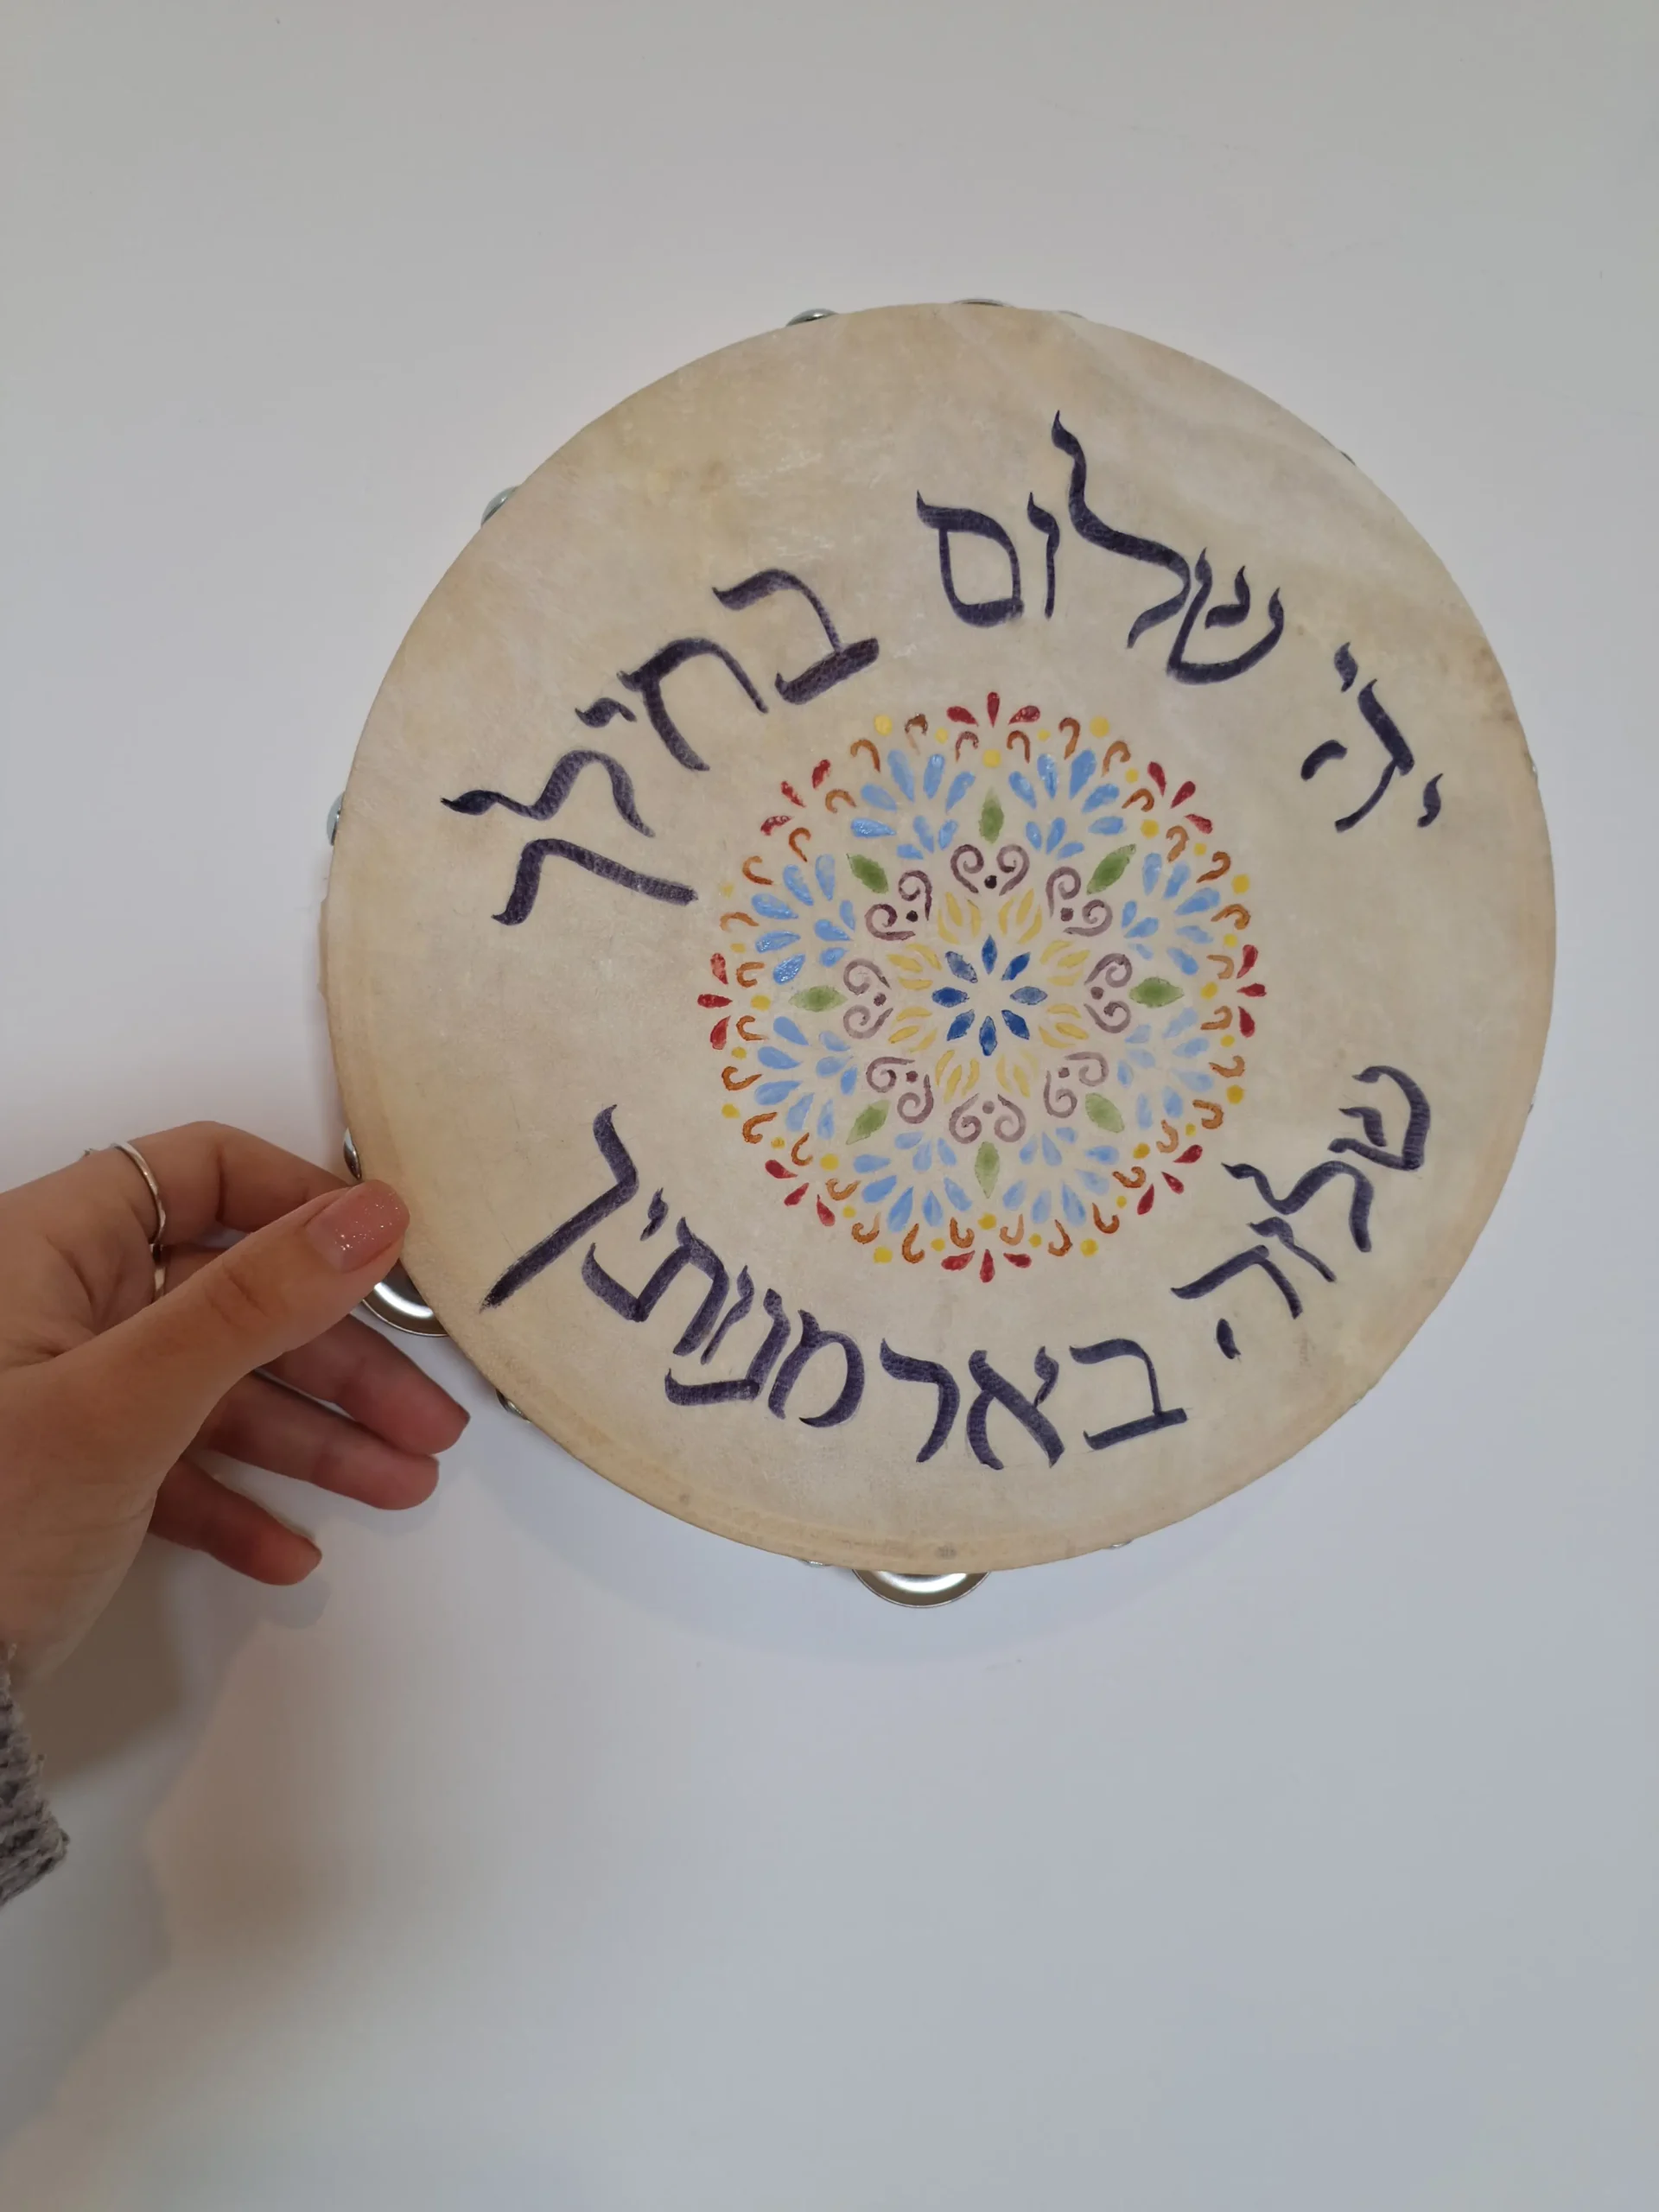 יהי שלום בחילך
שלוה בארמנותיך